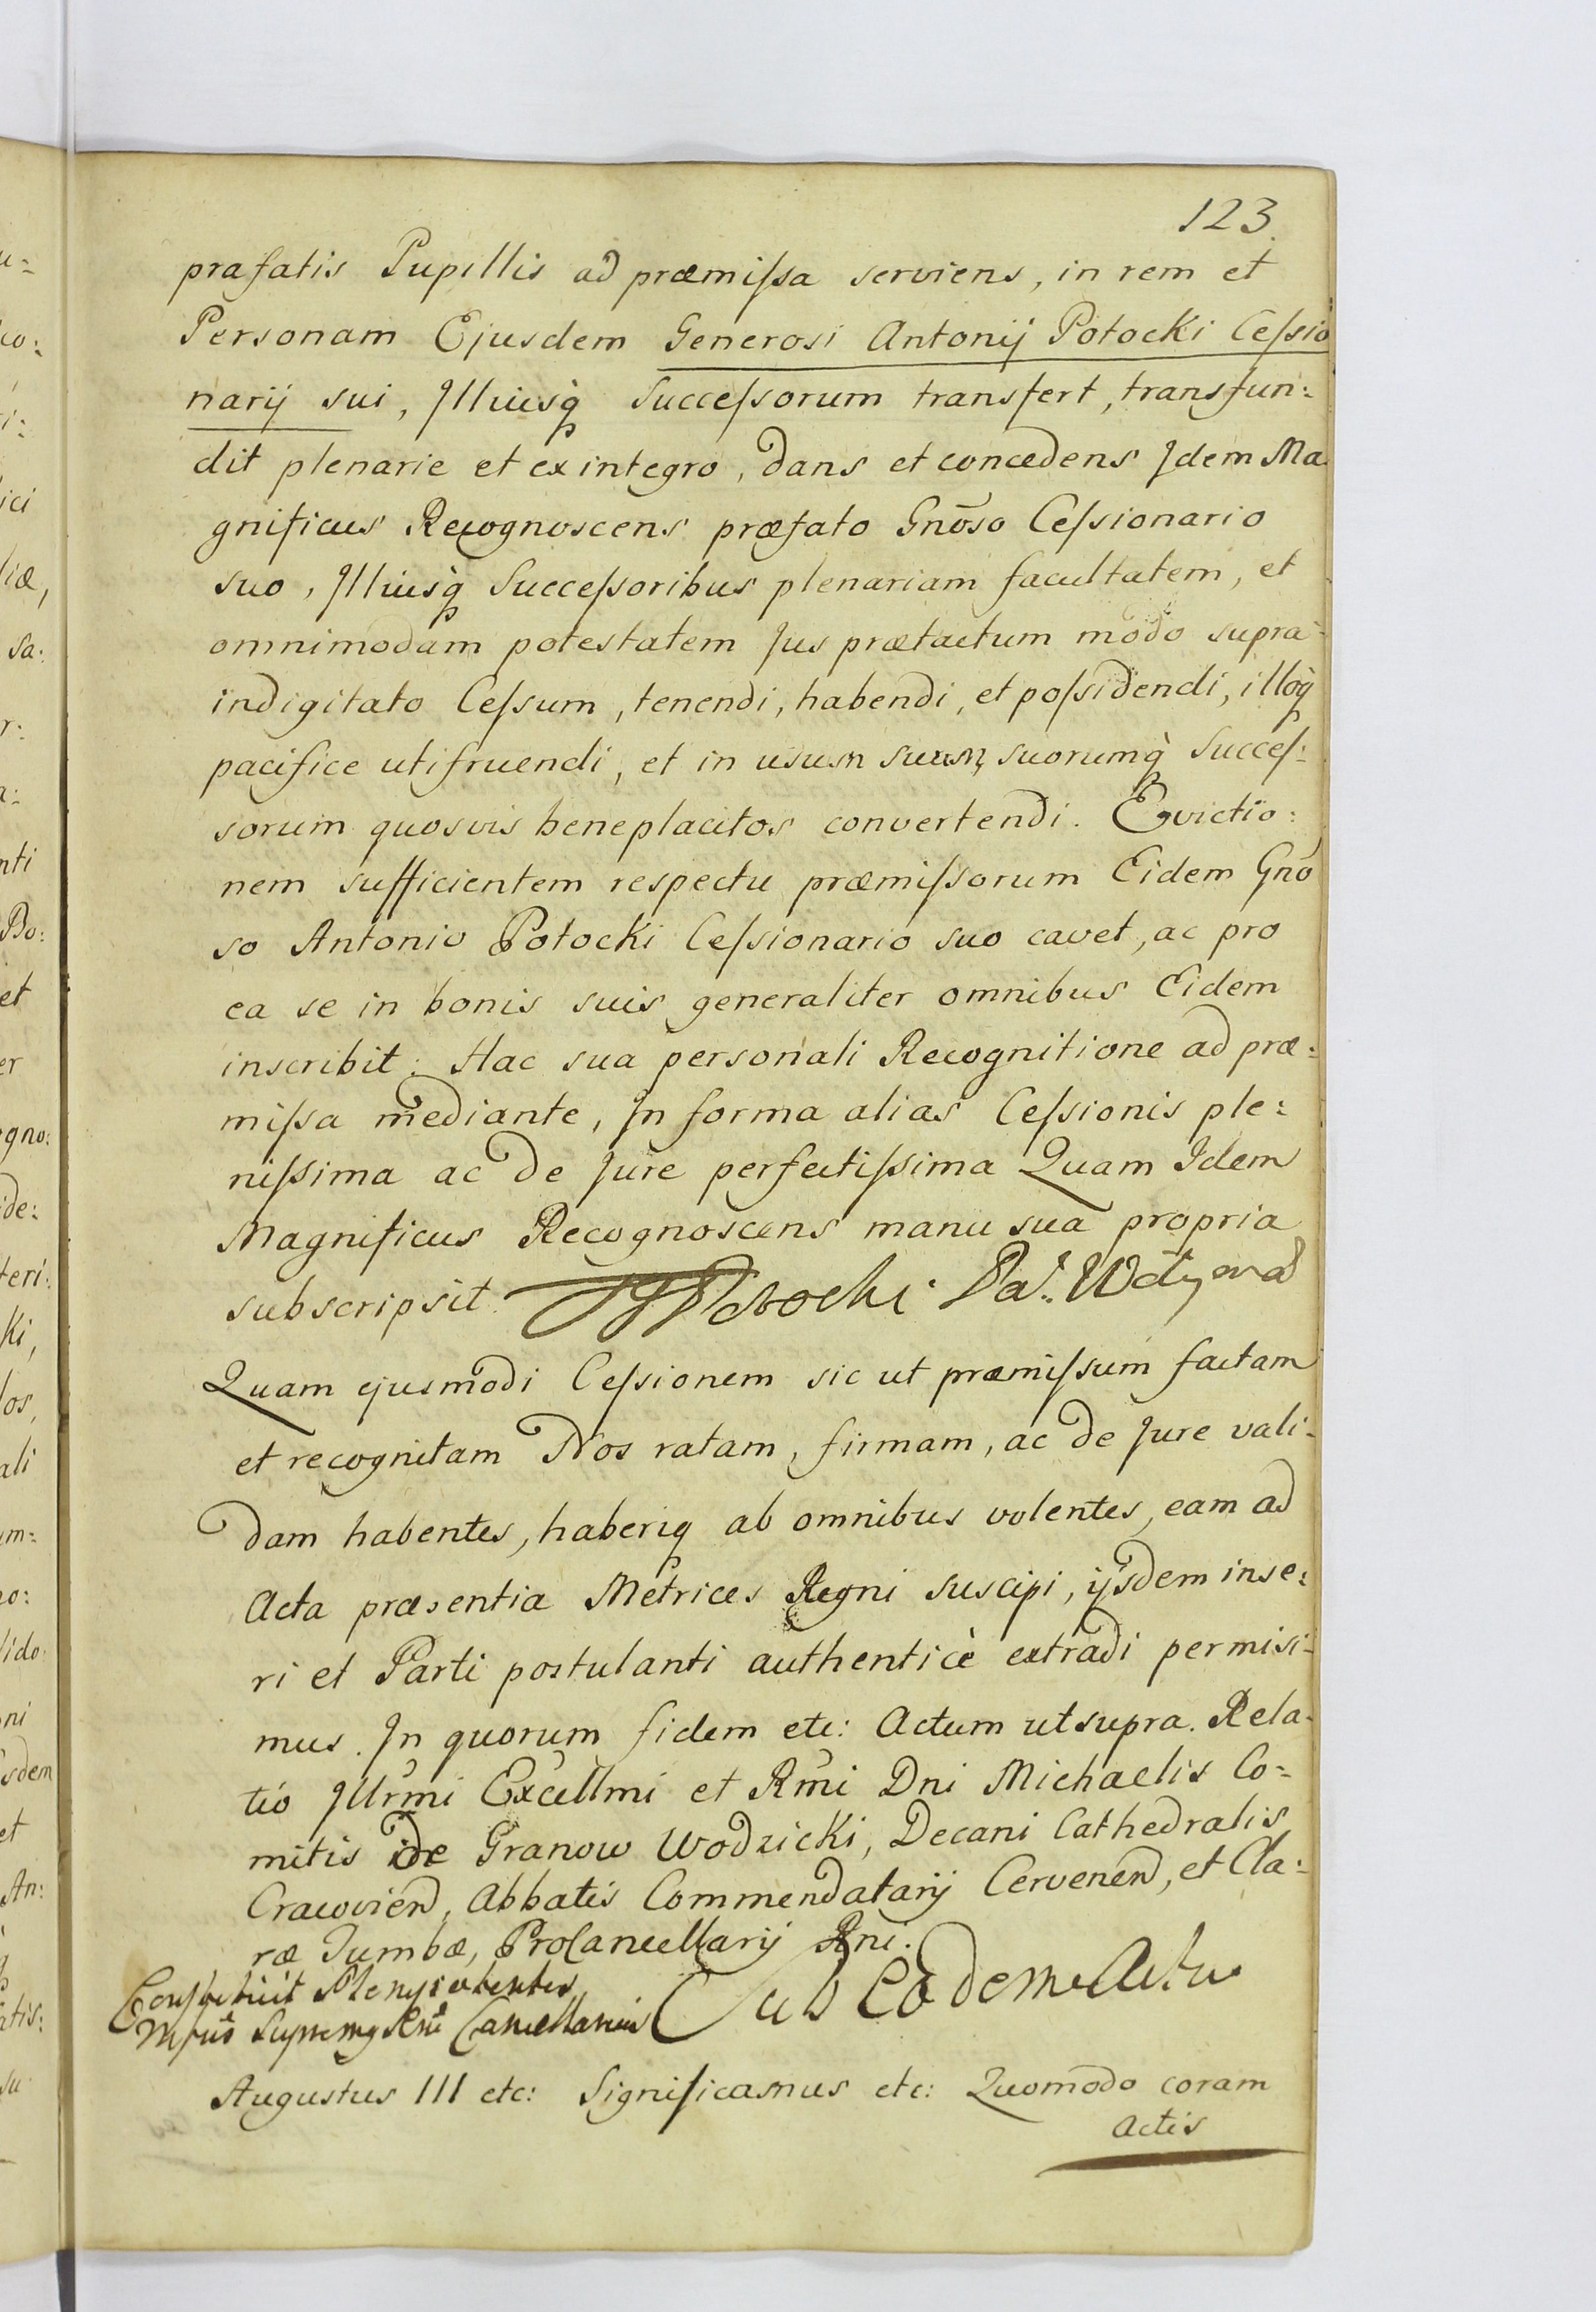 123.
præfatis Pupillis ad præmiſsa serviens, in rem et
Personam Ejusdem Generosi Antonij Potocki Ceſsio
narij sui, Illiusq̀ Succeſsorum transfert, transfun:
dit plenarie et ex integro, dans et concedens Idem Ma
gnificus Recognoscens præfato Gnōso Ceſsionario
suo, Illiusq̀ Succeſsoribus plenariam facultatem, et
omnimodam potestatem Jus prætactum modo supra
indigitato Ceſsum, tenendi, habendi, et poſsidendi, illoq̀
pacifice utifruendi, et in usum suum, suorumq̀ Succeſ:
sorum quosvis beneplacitos convertendi. Evictio:
nem sufficientem respectu præmiſsorum Eidem Gnō
so Antonio Potocki Ceſsionario suo cavet, ac pro
ea se in bonis suis generaliter omnibus Eidem
inscribit. Hac sua personali Recognitione ad præ:
miſsa mediante, In forma alias Ceſsionis ple:
niſsima ac de Jure perfectiſsima Quam Idem
Magnificus Recognoscens manu sua propria
subscripsit. Potocki
Quam ejusmodi Ceſsionem sic ut præmiſsum factam
et recognitam Nos ratam, firmam, ac de Jure vali:
dam habentes, haberiq ab omnibus volentes, eam ad
Acta præsentia Metrices Regni suscipi, ijsdem inse:
ri et Parti postulanti authenticè extradi permisi:
mus. In quorum fidem etc: Actum ut supra. Rela:
tio Illrmi Excellmi et Rmi Dni Michaelis Co:
mitis de Granow Wodzicki, Decani Cathedralis
Cracovien, Abbatis Commendatarij Cervenen, et Cla:
ræ Tumbæ, ProCancellarij Rni.
Constituit Plenipotentes
Mfus Supremg Rni Cancellarius
Sub Eodem Actu
Augustus III etc: Significamus etc: Quomodo coram
Actis